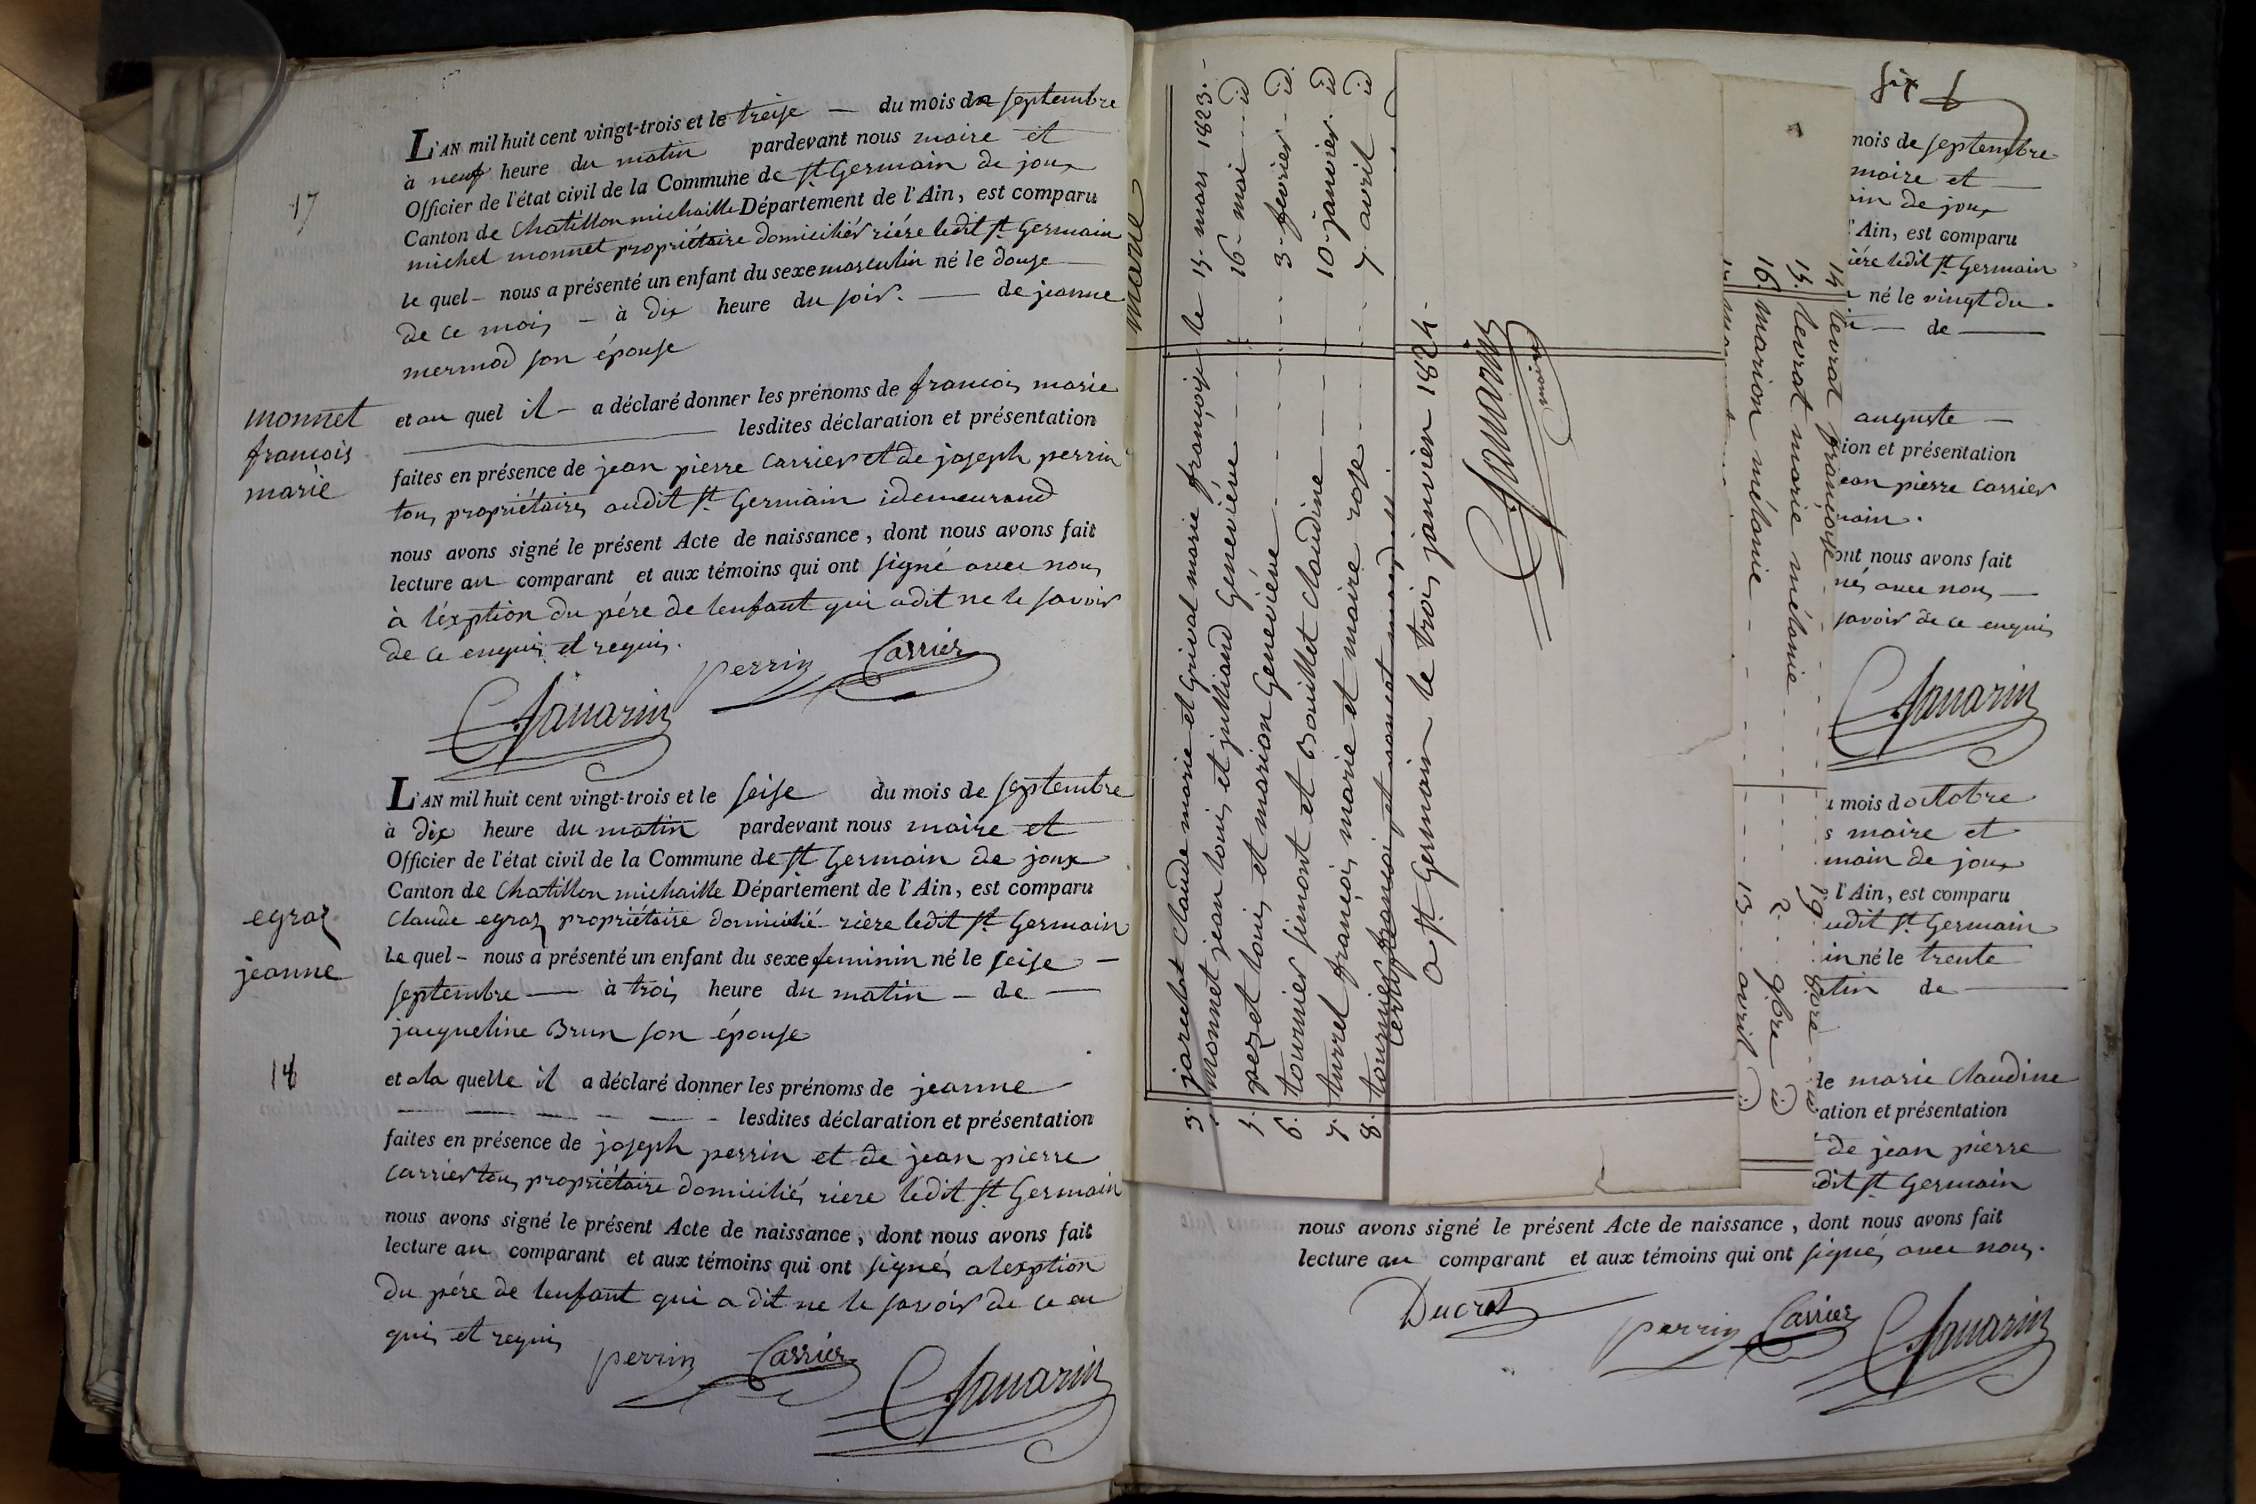 L'AN mil huit cent vingt-trois et le treise — du mois de septembre
à neuf heure du matin pardevant nous maire et
Officier de l'état civil de la Commune de St Germain de joux
Canton de Chatillon michaille Département de l'Ain, est comparu
michel monnet propriétaire domiciliés riére ledit St Germain
le quel – nous a présenté un enfant du sexe masculin né le douse
de ce mois – à dix heure du soir. — de jeanne
mermod son épouse
17
et au quel il – a déclaré donner les prénoms de francois marie
— lesdites déclaration et présentation
monnet
francois
marie
faites en présence de jean pierre Carrier et de joseph perrin
tous propriétaires audit St Germain idemeurand
nous avons signé le présent Acte de naissance, dont nous avons fait
lecture au comparant et aux témoins qui ont signé avec nous
à l'éxption du pére de lenfant qui adit ne le savoir
de ce enquis et requis.
perrin Carrier
Savarin
L'AN mil huit cent vingt-trois et le seise du mois de septembre
à dix heure du matin pardevant nous maire et
Officier de l'état civil de la Commune de St Germain de joux
Canton de Chatillon michaille Département de l'Ain, est comparu
Claude egraz propriétaire domicilié riére ledit St Germain
Le quel – nous a présenté un enfant du sexe feminin né le seise –
septembre — à trois heure du matin – de —
jacqueline Brun son épouse
egraz
jeanne
18
et ala quelle il a déclaré donner les prénoms de jeanne –
— — — — — - lesdites déclaration et présentation
faites en présence de joseph perrin et de jean pierre
Carrier tous propriétaire domiciliés riere ledit St Germain
nous avons signé le présent Acte de naissance, dont nous avons fait
lecture au comparant et aux témoins qui ont signés alexption
du pére de lenfant qui a dit ne le savoir de ce en
quis et requis
perrin Carrier
Savarin
marie
3. jarclet Claude marie et Grival marie françoise le 15. mars 1823. -
monnet jean louis et julliand Geneviéve - - - 16 - mai - - id
5. pezet louis et marion Geneviéve - - - 3 - fevrier - id.
6. tournier simont et Bouillet Claudine - - - 10 - janvier - id
7. turrel françois marie et maire rose - - - 7. avril id
8. tournier francois et
Certifié
a St Germain le trois janvier 1824 -
Savarin
14. levrat françoise - - - 19 8bre id
15. levrat marie mélanie - - - 2 9bre id
16. marion mélanie - - - 13 avril id
six 6
mois de septembre
maire et —
ain de joux
l'Ain, est comparu
iére ledit St Germain
né le vingt du -
— de —
auguste —
ion et présentation
ean pierre Carrier
main.
ont nous avons fait
nés avec nous —
savoir de ce enquis
Savarin
mois doctobre
s maire et
main de joux
l'Ain, est comparu
udit St Germain
in né le trente
atin de —
de marie Claudine
ation et présentation
de jean pierre
dit St Germain
nous avons signé le présent Acte de naissance, dont nous avons fait
lecture au comparant et aux témoins qui ont signés avec nous.
Ducret
perrin Carrier Savarin